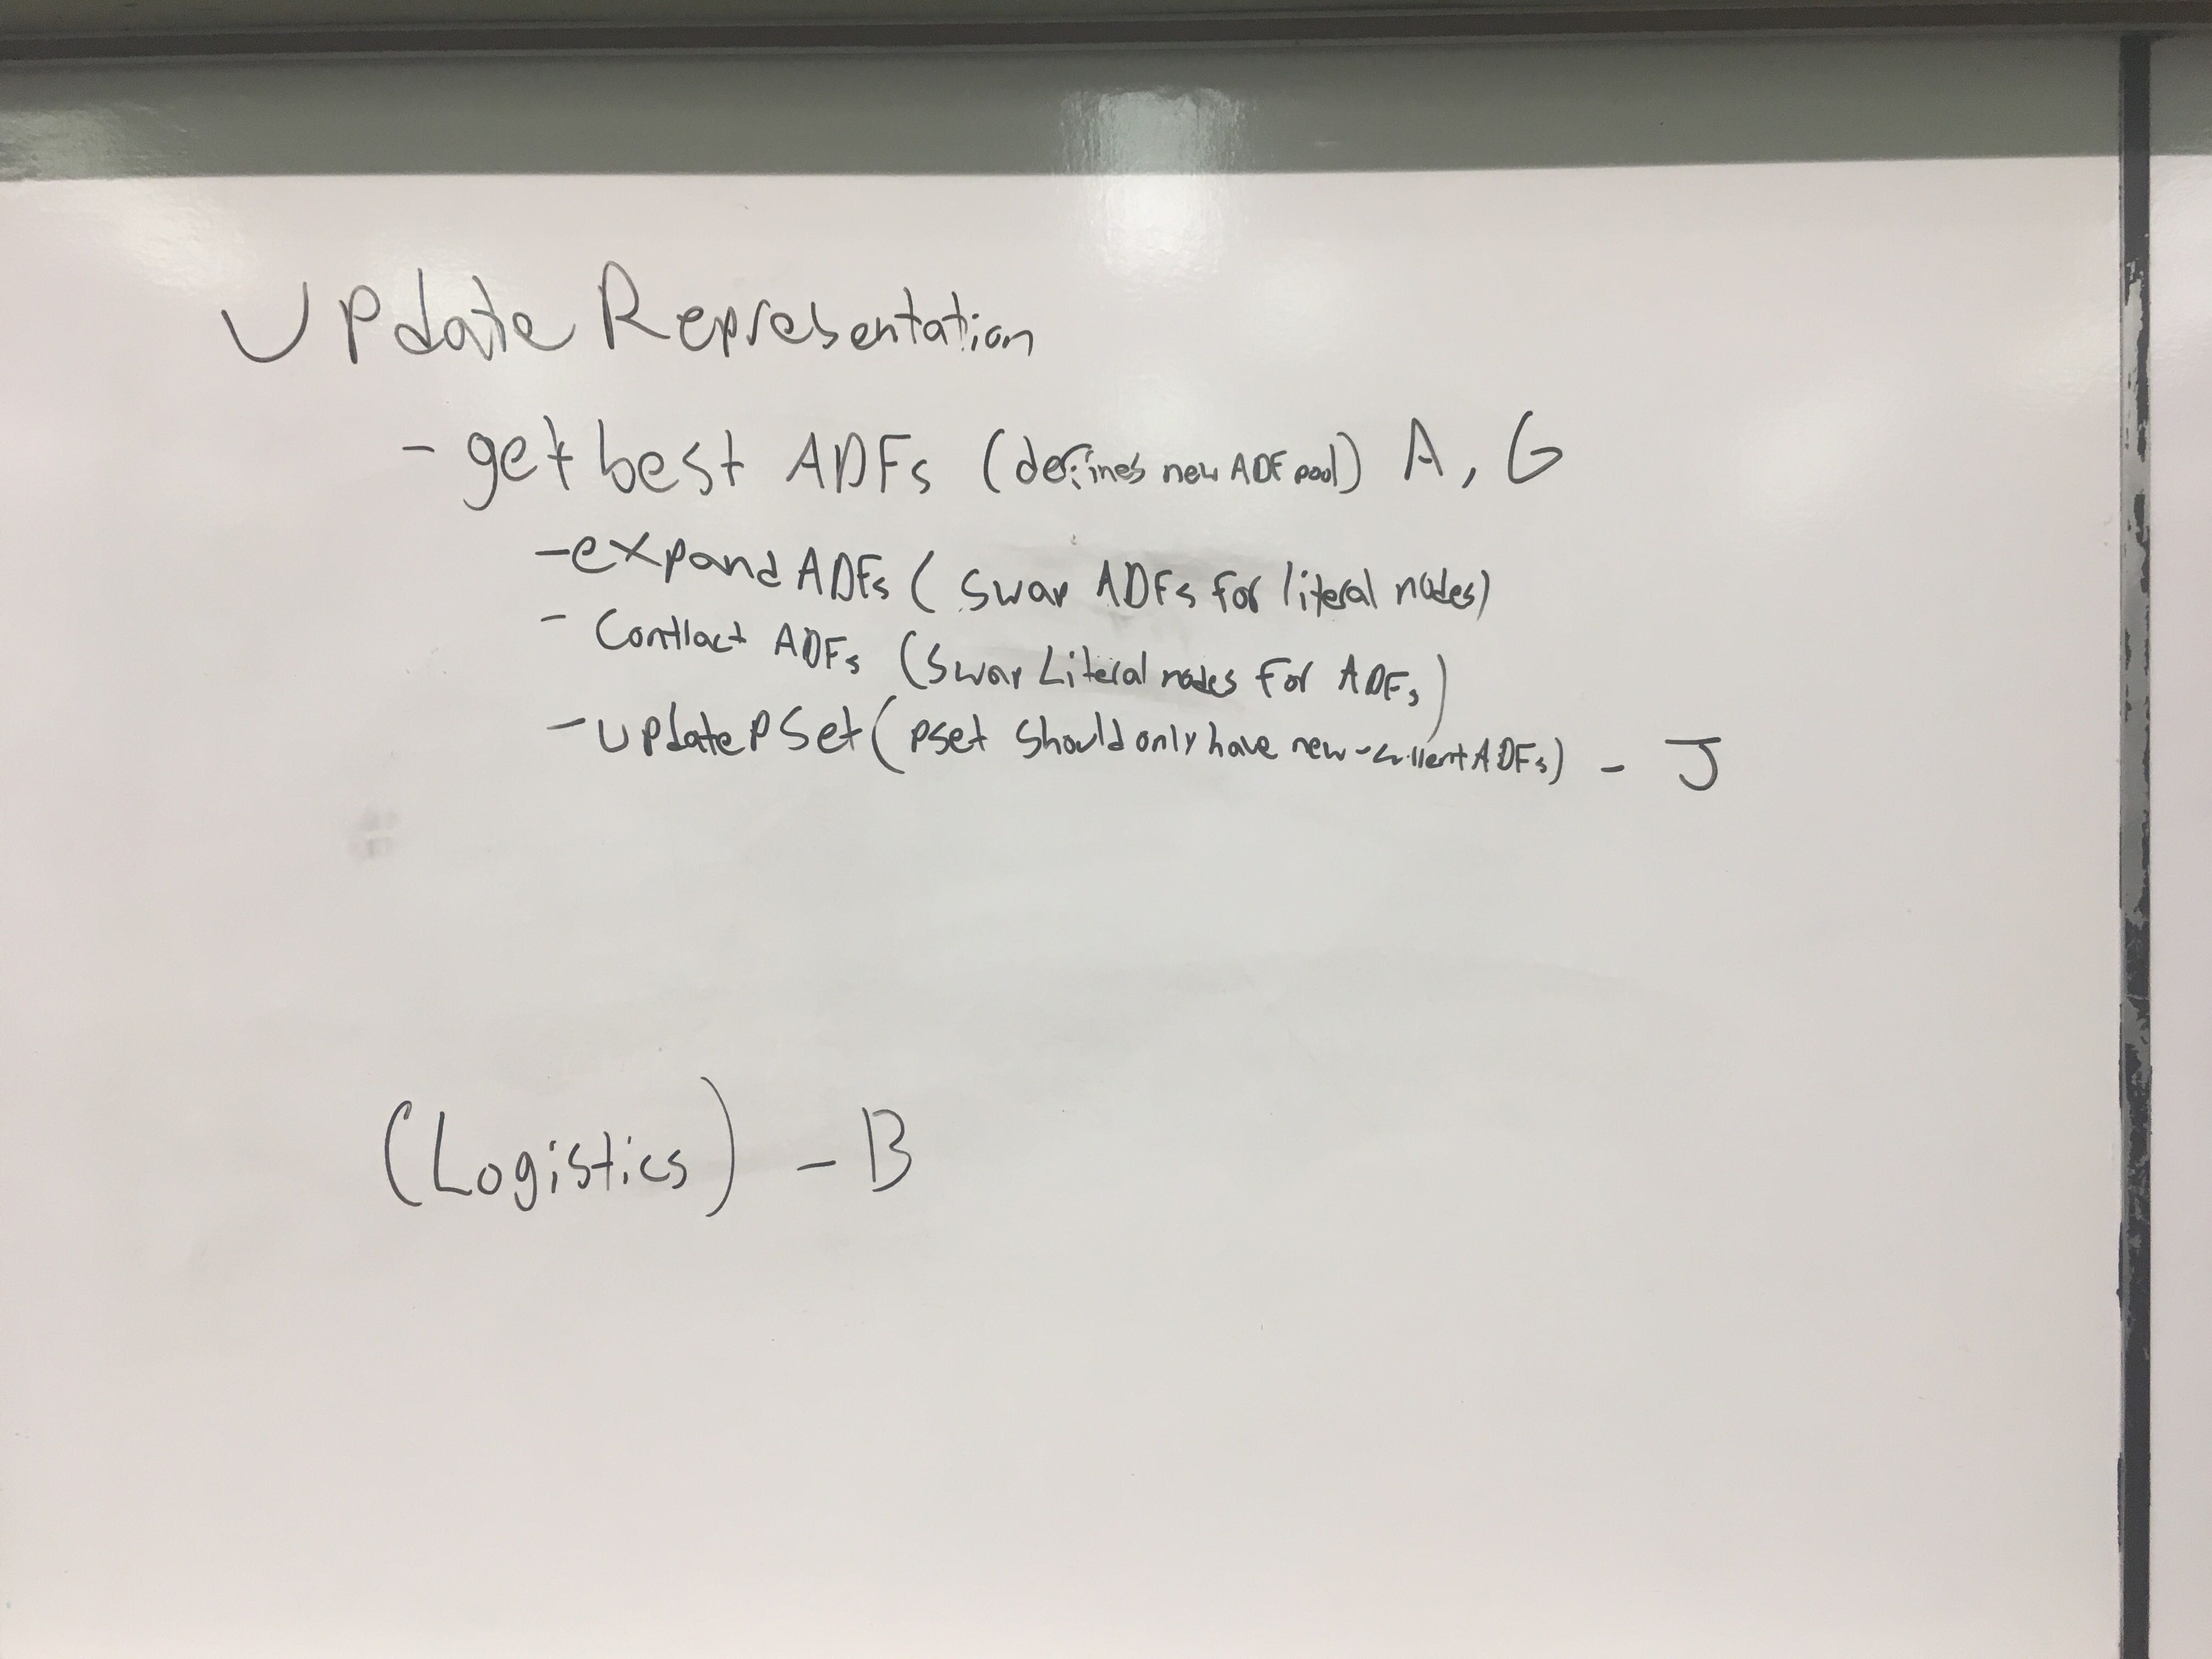 Update Representation
- get best ADFs (defines new ADF pool) A, G
- expand ADFs (Swap ADFs for literal nodes)
- Contract ADFs (Swap Literal nodes for ADFs)
- update PSet (pset should only have new-current ADFs) - J
(Logistics) - B